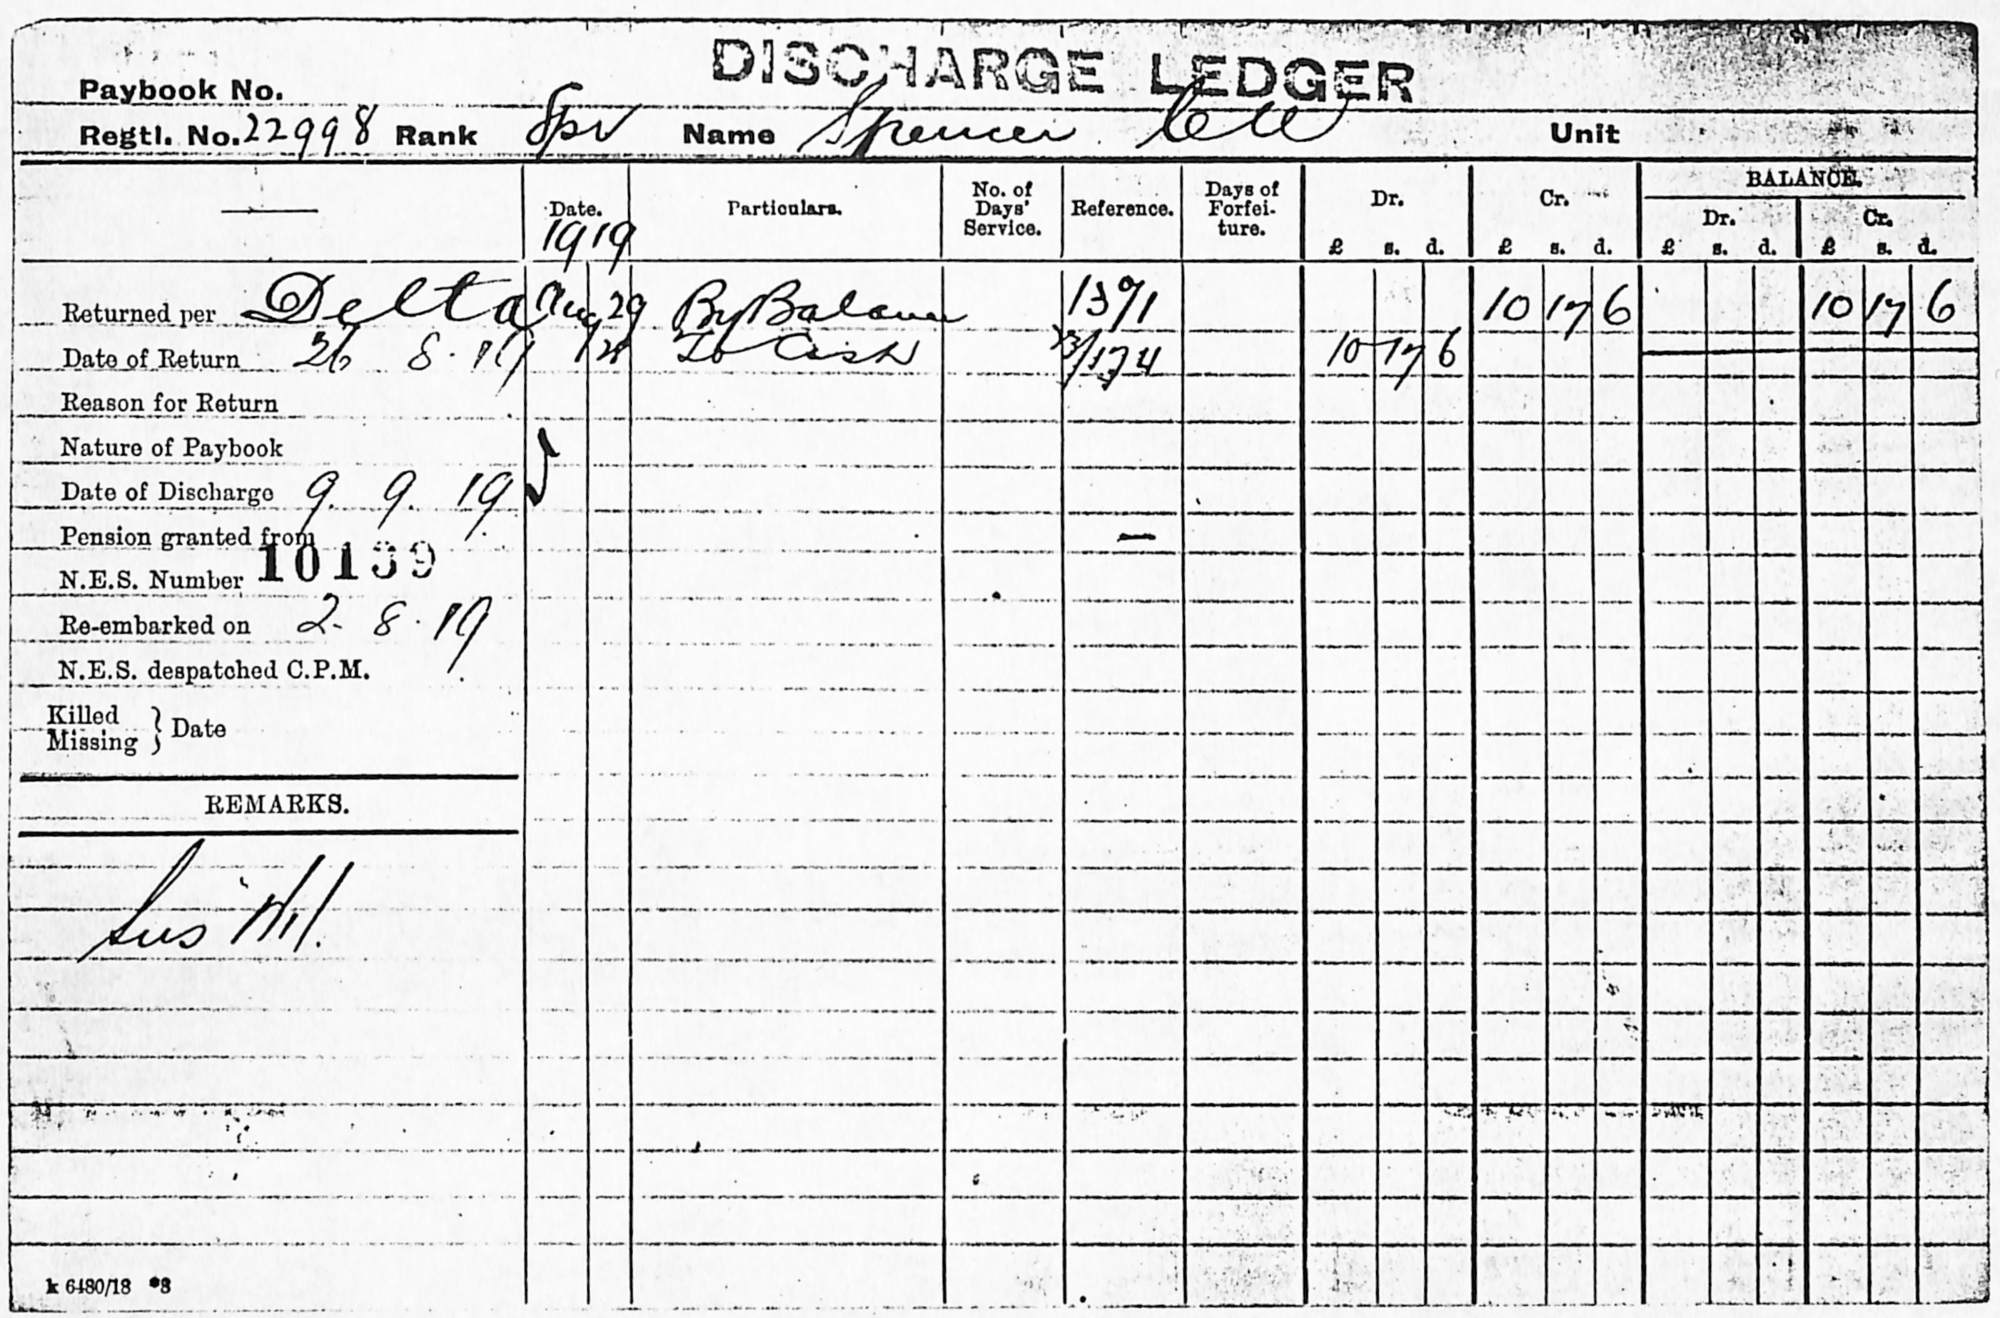 DISCHARGE LEDGER
Paybook No.
Regtl. No. 22998 Rank Spr Name Spencer Unit
Date. Particulars. No. of Days' Service. Reference. Days of Forfei-ture. Dr. Cr. BALANCE.
Dr. Cr.
1919 £ s. d. £ s. d. £ s. d. £ s. d.
Returned per Delta Aug 29 By Balance 1391 10 17 6 10 17 6
Date of Return 26 8. 19 To Cash 10 17 6
Reason for Return
Nature of Paybook
Date of Discharge 9. 9. 19
Pension granted from
N.E.S. Number 10139
Re-embarked on 2. 8. 19
N.E.S. despatched C.P.M.
Killed
Missing } Date
REMARKS.
k 6480/18 *3